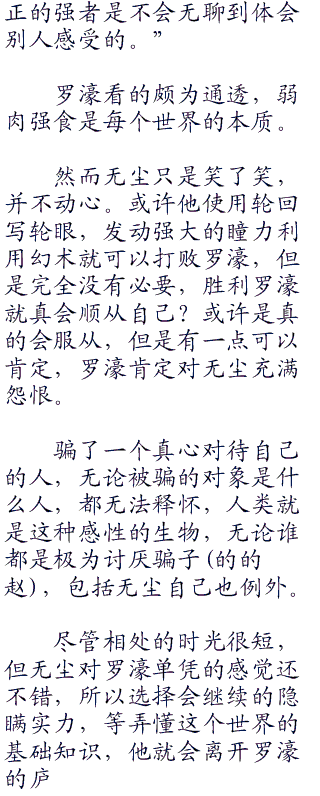 正的强者是不会无聊到体会
别人感受的。”
罗濠看的颇为通透，弱
肉强食是每个世界的本质。
然而无尘只是笑了笑，
并不动心。或许他使用轮回
写轮眼，发动强大的瞳力利
用幻术就可以打败罗濠，但
是完全没有必要，胜利罗濠
就真会顺从自己？或许是真
的会服从，但是有一点可以
肯定，罗濠肯定对无尘充满
怨恨。
骗了一个真心对待自己
的人，无论被骗的对象是什
么人，都无法释怀，人类就
是这种感性的生物，无论谁
都是极为讨厌骗子(的的
赵)，包括无尘自己也例外。
尽管相处的时光很短，
但无尘对罗濠单凭的感觉还
不错，所以选择会继续的隐
瞒实力，等弄懂这个世界的
基础知识，他就会离开罗濠
的庐